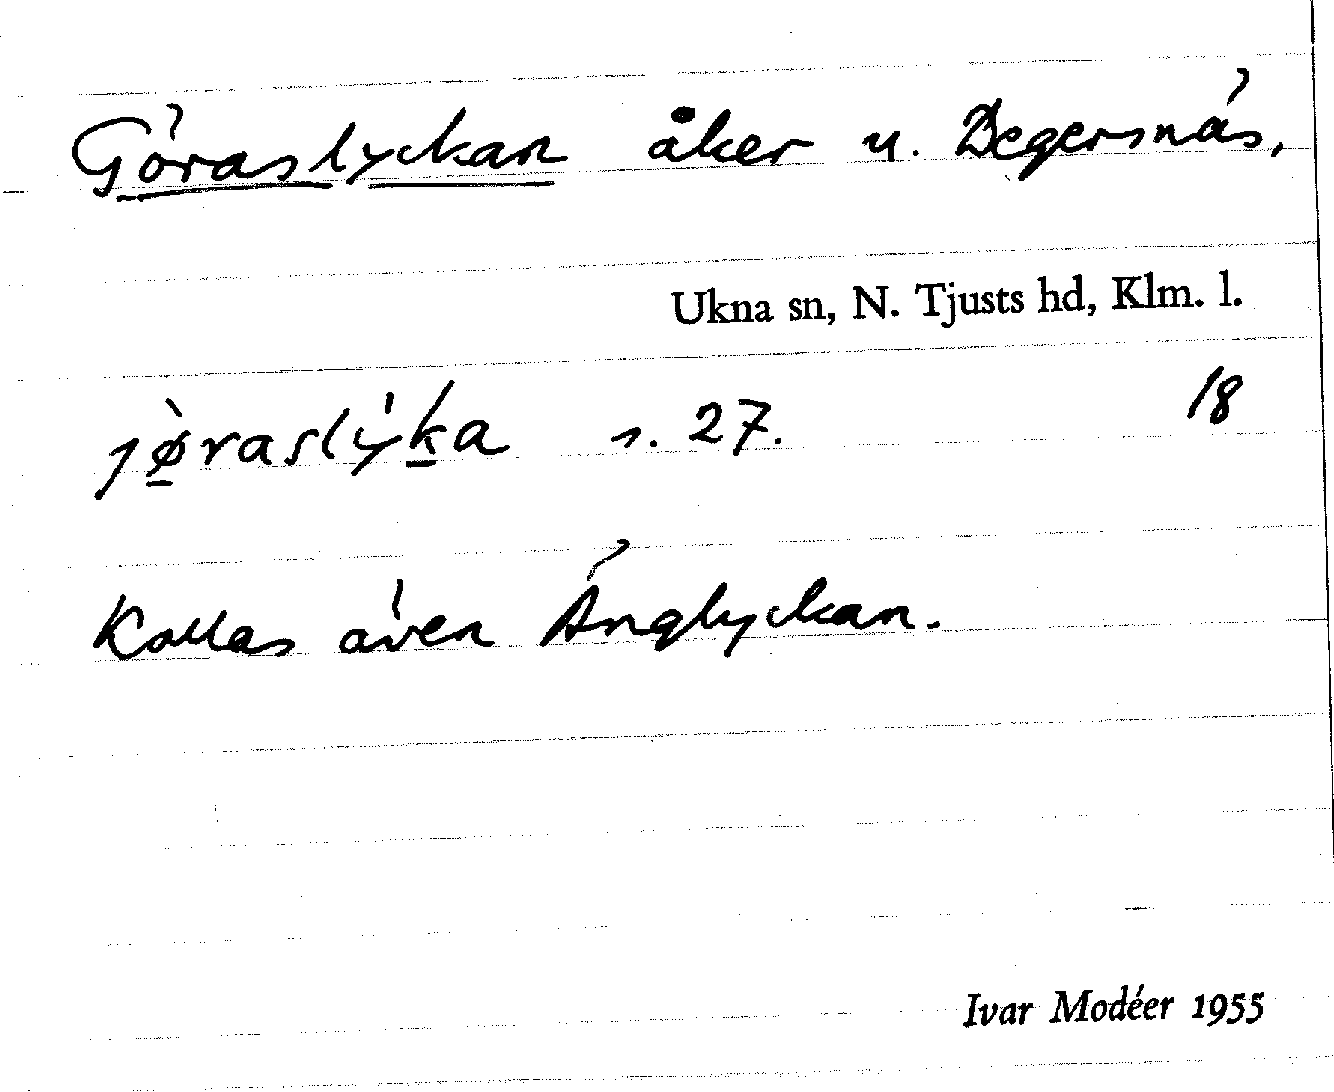 Göraslyckan åker u. Degersnäs,
Ukna sn, N. Tjusts hd, Klm. l.
jø̀raslýka s. 27. 18
Kallas även Änglyckan.
Ivar Modéer 1955